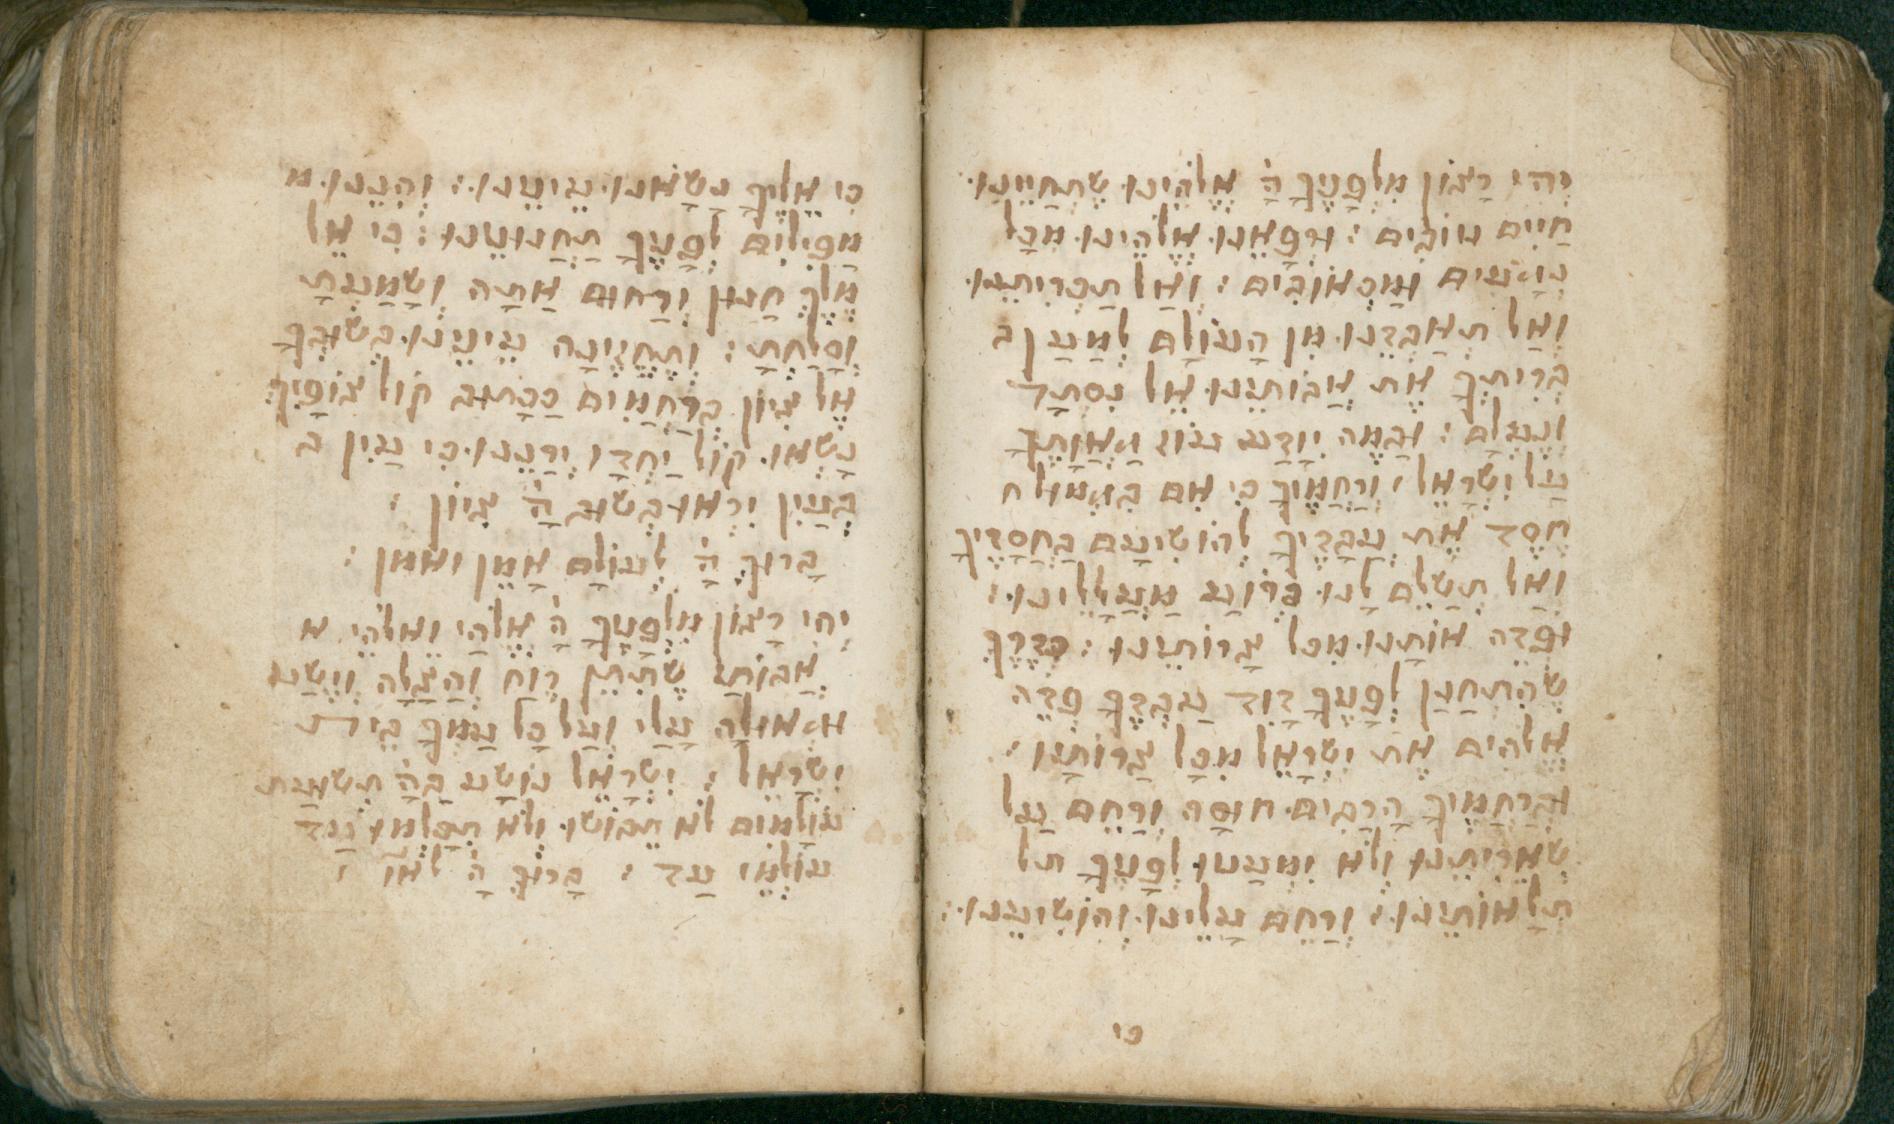 יְהִי רָצוֹן מִלְפָנֶיךָ הָ׳ אֱלֹהֵינוּ שֶתְחַיֵינוּ
חַיִים טוֹבִים : וּרְפָאֵנוּ אֱלֹהֵינוּ מִכָל
נְגָעִים וּמַכְאוֹבִים : וְאַל תַכְרִיתֵנוּ
וְאַל תְאַבְדֵנוּ מִן הָעוֹלָם לְמַעַן ב
בְרִיתְךָ אֶת אֲבוֹתֵינוּ אֵל נִסְתָר
וְנֶעְלָם : וּבַמֶה יִוָדַע עוֹז גַאֲוָתֶךָ
עַל יִשְרָאֵל : וְרַחֲמֶיךָ כִי אִם בִגְמוּל ח
חֶסֶד אֶת עֲבָדֶיךָ לְהוֹשִיעָם בַחֲסָדֶיךָ
וְאַל תְשַלֵם לָנוּ כְרוֹעַ מַעֲלָלֵינוּ :
וּפְדֵה אוֹתָנוּ מִכל צָרוֹתֵינוּ : כְדֶרֶךְ
שֶהִתְחַנַן לְפָנֶיךָ דָוִד עַבְדֶךָ פְדֵה
אֱלֹהִים אֶת יִשְרָאֵל מִכָל צָרוֹתָיו :
וּבְרַחֲמֶיךָ הָרַבִים חוּסָה וְרַחֵם עַל
שְאֵרִיתֵנוּ וְלֹא יִמְעֲטוּ לְפָנֶיךָ תל
תְלָאוֹתֵינוּ : וְרַחֵם עָלֵינוּ וְהוֹשִיעֵנוּ :
כי
כִי אֵלֶיךָ נָשָאנוּ עֵינֵינוּ : וְהִנֵנוּ מ
מַפִילִים לְפָנֶיךָ תַחֲנוּנֵינוּ : כִי אֵל
מֶלֶךְ חַנוּן וְרַחוּם אַתָה וְשָמַעְתָ
וְסָלַחְתָ : וְתֶחֱזֶינָה עֵינֵינוּ בְשׁוּבְךָ
אֶל צִיוֹן בְרַחֲמִים כַכָתוּב קוֹל צוֹפַיִךְ
נָשְאוּ קוֹל יַחְדָו יְרַנֵנוּ כִי עַיִן ב
בְעַיִן יִרְאוּ בְשוּב הָ׳ צִיוֹן :
בָרוּךְ הָ׳ לְעוֹלָם אָמֵן ואמן :
יְהִי רָצוֹן מִלְפָנֶיךָ הָ׳ אֱלֹהַי וֵאלֹהֵי א
אֲבוֹתַי שֶתִתֵן רֶוַח וְהַצָלָה וְיֶשַע
וגְאוּלָה עָלַי וְעַל כָל עַמְךָ בֵית
יִשְרָאֵל : יִשְרָאֵל נוֹשַע בַהָ׳ תְשוּעַת
עוֹלָמִים לֹא תֵבוֹשוּ וְלֹא תִכָלְמוּ עַד
עוֹלְמֵי עַד : בָרוּךְ הָ׳ לְאוֹ׳ :